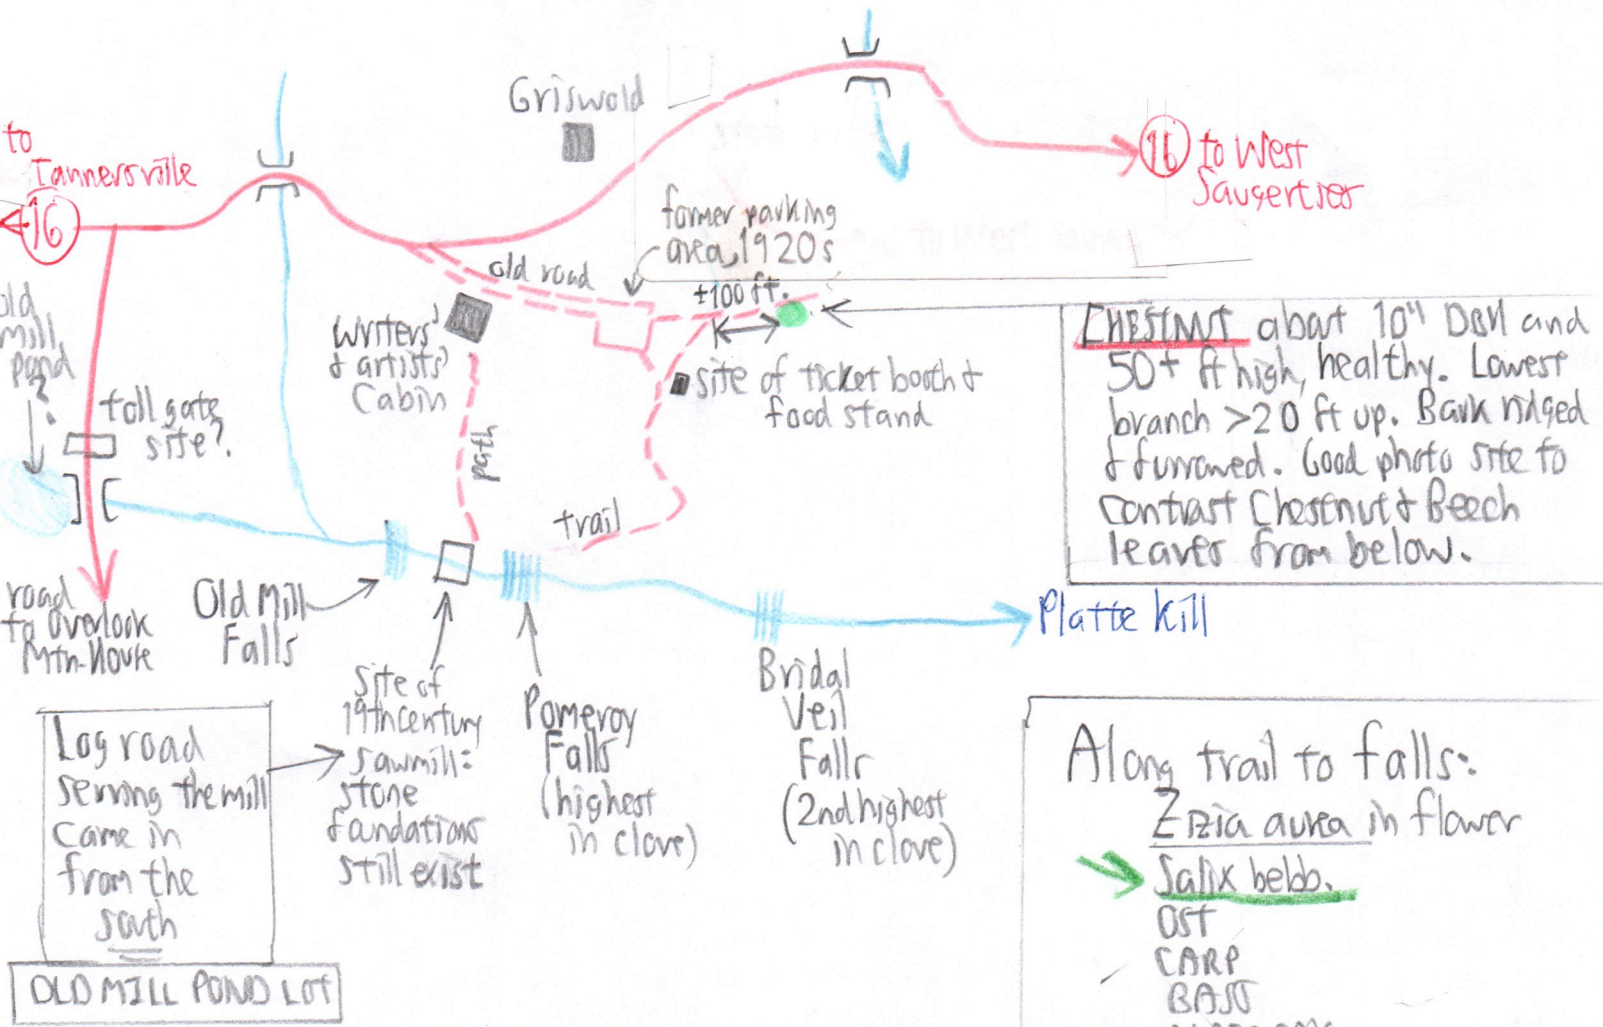 Griswold
to
Tannersville
16
16
to West
Saugerties
former parking
area, 1920s
old road
±100 ft.
old
mill
pond
?
toll gate
site?
Writers'
& artists'
Cabin
path
site of ticket booth &
food stand
trail
CHESTNUT about 10" DBH and
50+ ft high, healthy. Lowest
branch >20 ft up. Bark ridged
& furrowed. Good photo site to
contrast Chestnut & Beech
leaves from below.
road
to Overlook
Mtn-House
Old Mill
Falls
Platte Kill
Site of
19th century
sawmill:
stone
foundations
still exist
Pomeroy
Falls
(highest
in clove)
Bridal
Veil
Falls
(2nd highest
in clove)
Log road
serving the mill
came in
from the
south
OLD MILL POND LOT
Along trail to falls:
Zizia aurea in flower
Salix bebb.
OST
CARP
BASS